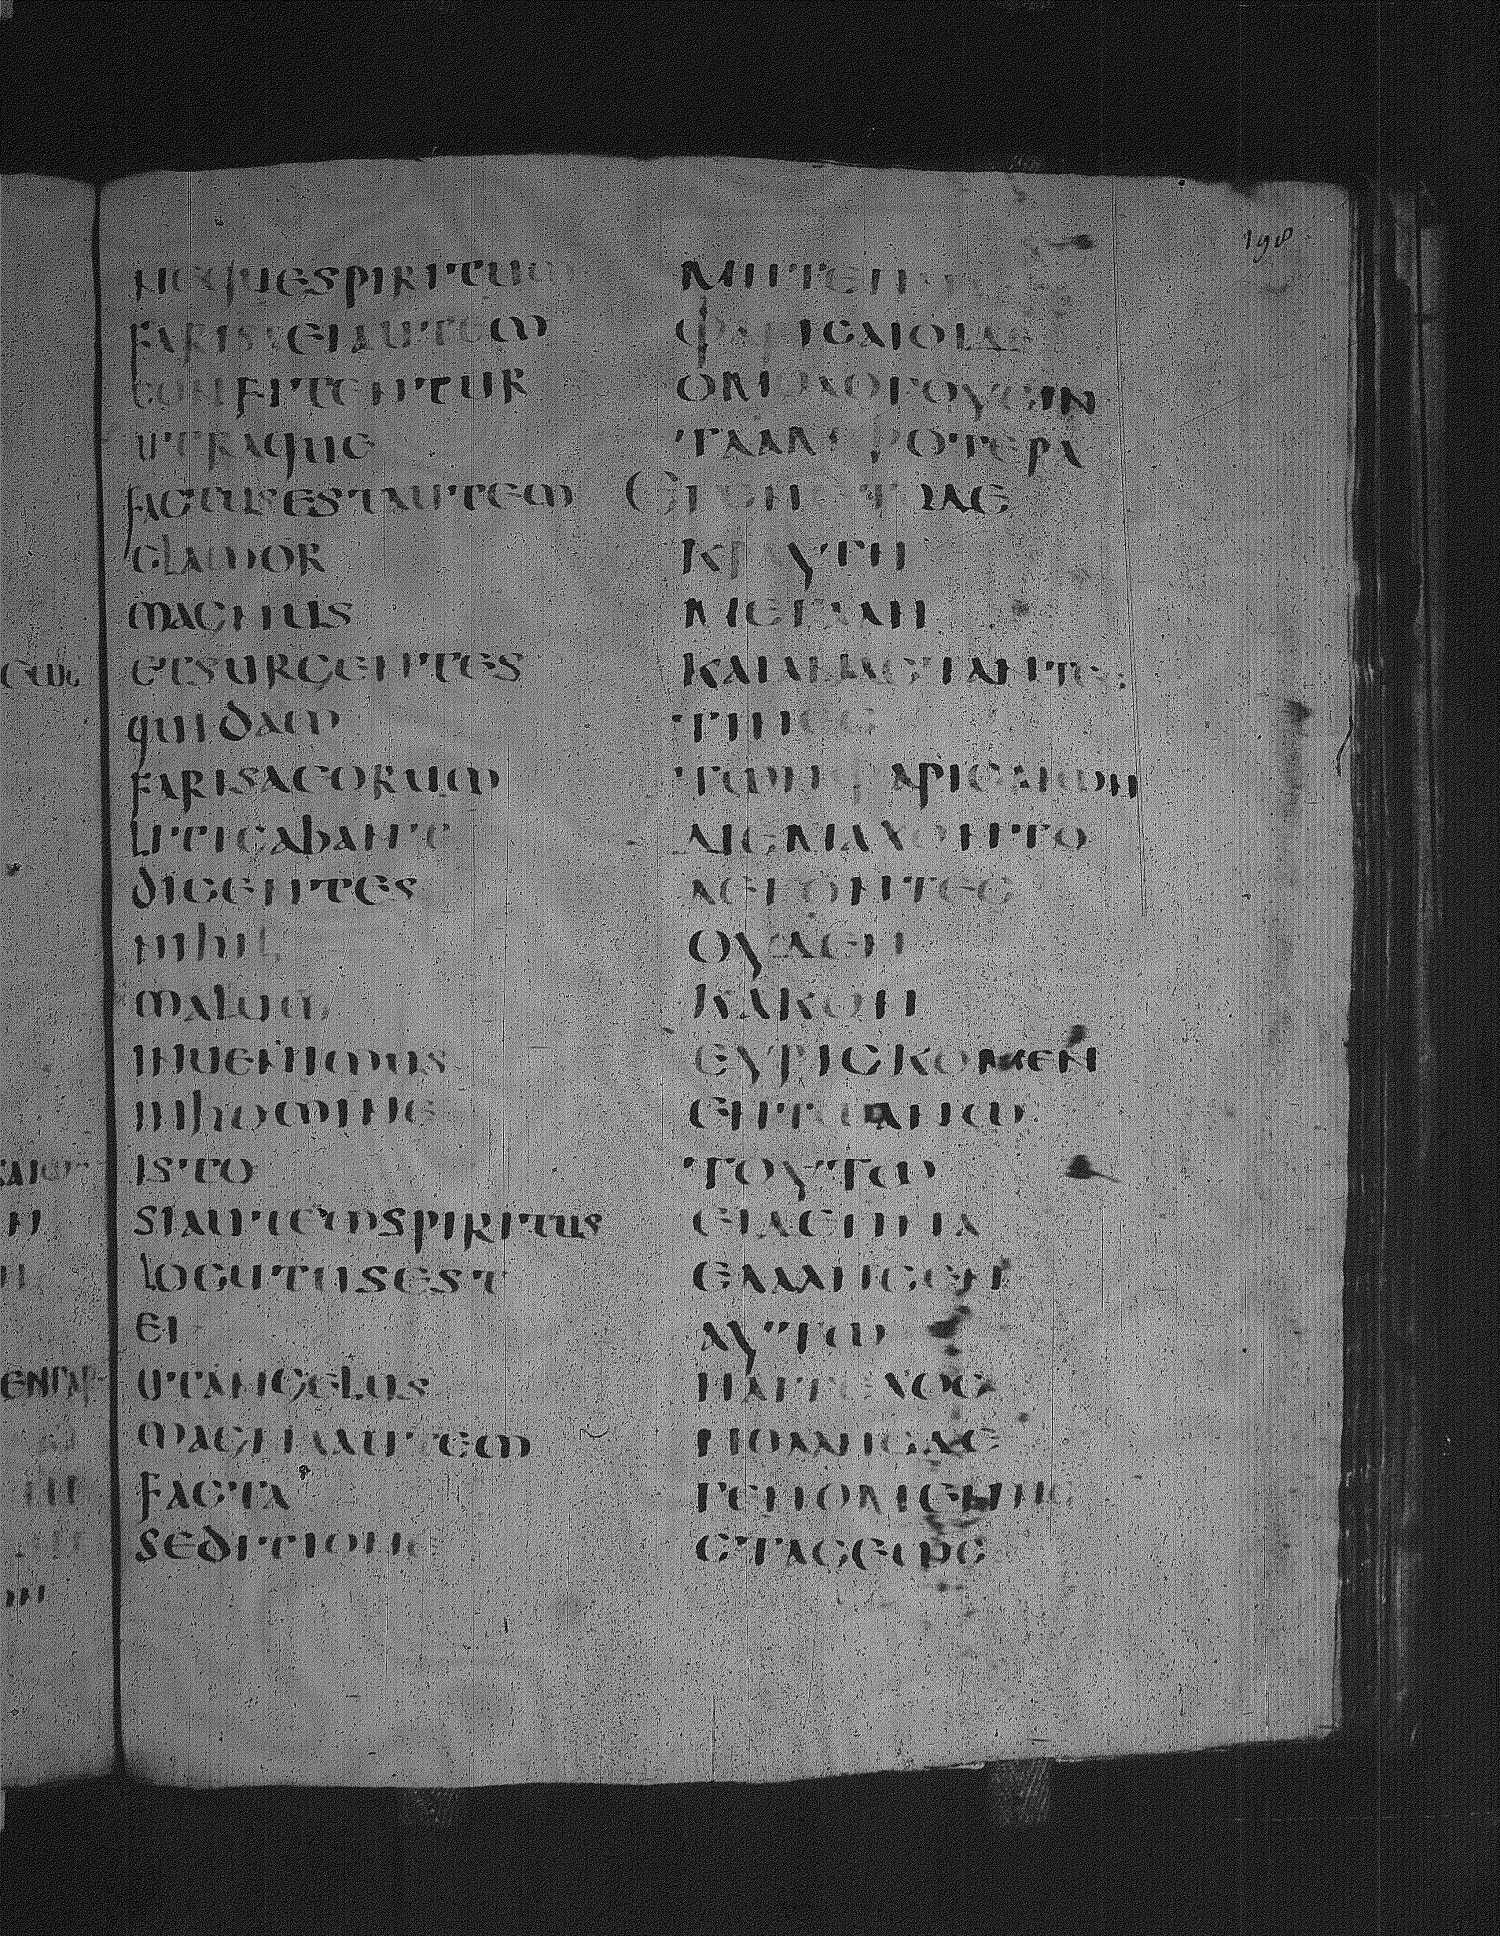 nequespiritum
farisaeiautem
confitentur
utraque
factusestautem
clamor
magnus
etsurgentes
quidam
farisaeorum
litigabant
dicentes
nihil
malum
inuenimus
inhomine
isto
siautemspiritus
locutusest
ei
utangelus
magnaautem
facta
seditione
ΜΗΤΕΠΝΑ
ΦΑΡΙϹΑΙΟΙΔΕ
ΟΜΟΛΟΓΟΥϹΙΝ
ΤΑΑΜΦΟΤΕΡΑ
ΕΓΕΝΕΤΟΔΕ
ΚΡΑΥΓΗ
ΜΕΓΑΛΗ
ΚΑΙΑΝΑϹΤΑΝΤΕϹ
ΤΙΝΕϹ
ΤΩΝΦΑΡΙϹΑΙΩΝ
ΔΙΕΜΑΧΟΝΤΟ
ΛΕΓΟΝΤΕϹ
ΟΥΔΕΝ
ΚΑΚΟΝ
ΕΥΡΙϹΚΟΜΕΝ
ΕΝΤΩΑΝΩ
ΤΟΥΤΩ
ΕΙΔΕΠΝΑ
ΕΛΑΛΗϹΕΝ
ΑΥΤΩ
ΗΑΓΓΕΛΟϹ
ΠΟΛΛΗϹΔΕ
ΓΕΝΟΜΕΝΗϹ
ϹΤΑϹΕΩϹ